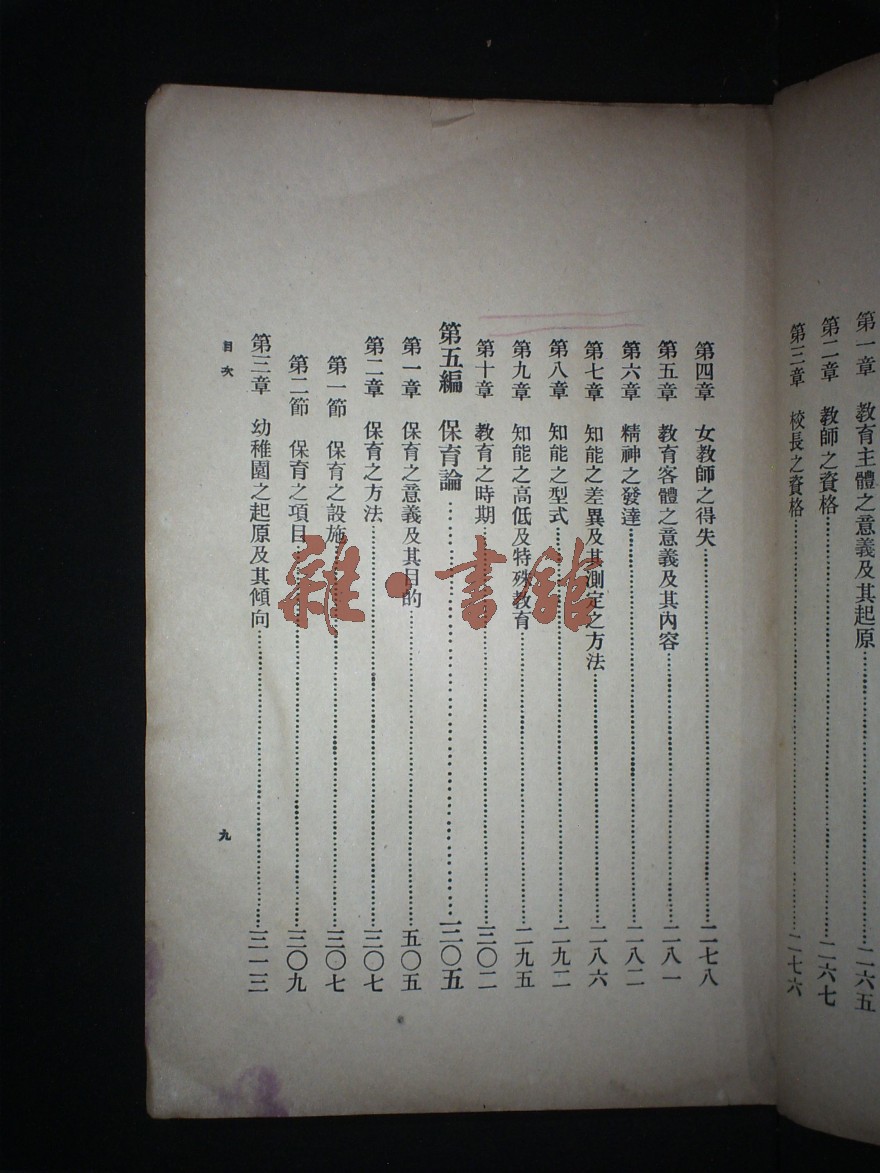 第一章 教育主體之意義及其起原……二六五
第二章 教師之資格……二六七
第三章 校長之資格……二七六
第四章 女教師之得失……二七八
第五章 教育客體之意義及其內容……二八一
第六章 精神之發達……二八二
第七章 知能之差異及其測定之方法……二八六
第八章 知能之型式……二九二
第九章 知能之高低及特殊教育……二九五
第十章 教育之時期……三〇二
第五編 保育論……三〇五
第一章 保育之意義及其目的……五〇五
第二章 保育之方法……三〇七
第一節 保育之設施……三〇七
第二節 保育之項目……三〇九
第三章 幼稚園之起原及其傾向……三一三
目次
九
雜·書館